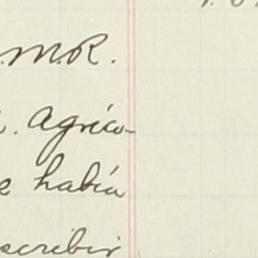 .M.R.
. Agríco-
e había
scribir